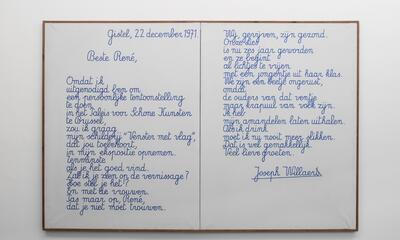 Gistel, 22 december 1971.
Beste René,
Omdat ik
uitgenodigd ben om
een persoonlijke tentoonstelling
te doen
in het Paleis voor Schone Kunsten
te Brussel,
zou ik graag
mijn schilderij "Venster met vlag",
dat jou toehoort,
in mijn ekspositie opnemen.
Tenminste
als je het goed vind.
Zal ik je zien op de vernissage?
Hoe stel je het?
En met de vrouwen.
Pas maar op, René,
dat je niet moet trouwen.
Wij, gevijven, zijn gezond.
Onze
is nu zes jaar geworden
en ze begint
al lichtjes te vrijen
met een jongentje uit haar klas.
We zijn een beetje ongerust,
omdat
de ouders van dat ventje
maar krapuul van volk zijn.
Ik heb
mijn amandelen laten uithalen.
Als ik drink
moet ik nu nooit meer slikken.
Dat is wel gemakkelijk.
Veel lieve groeten.
Joseph Willaert.